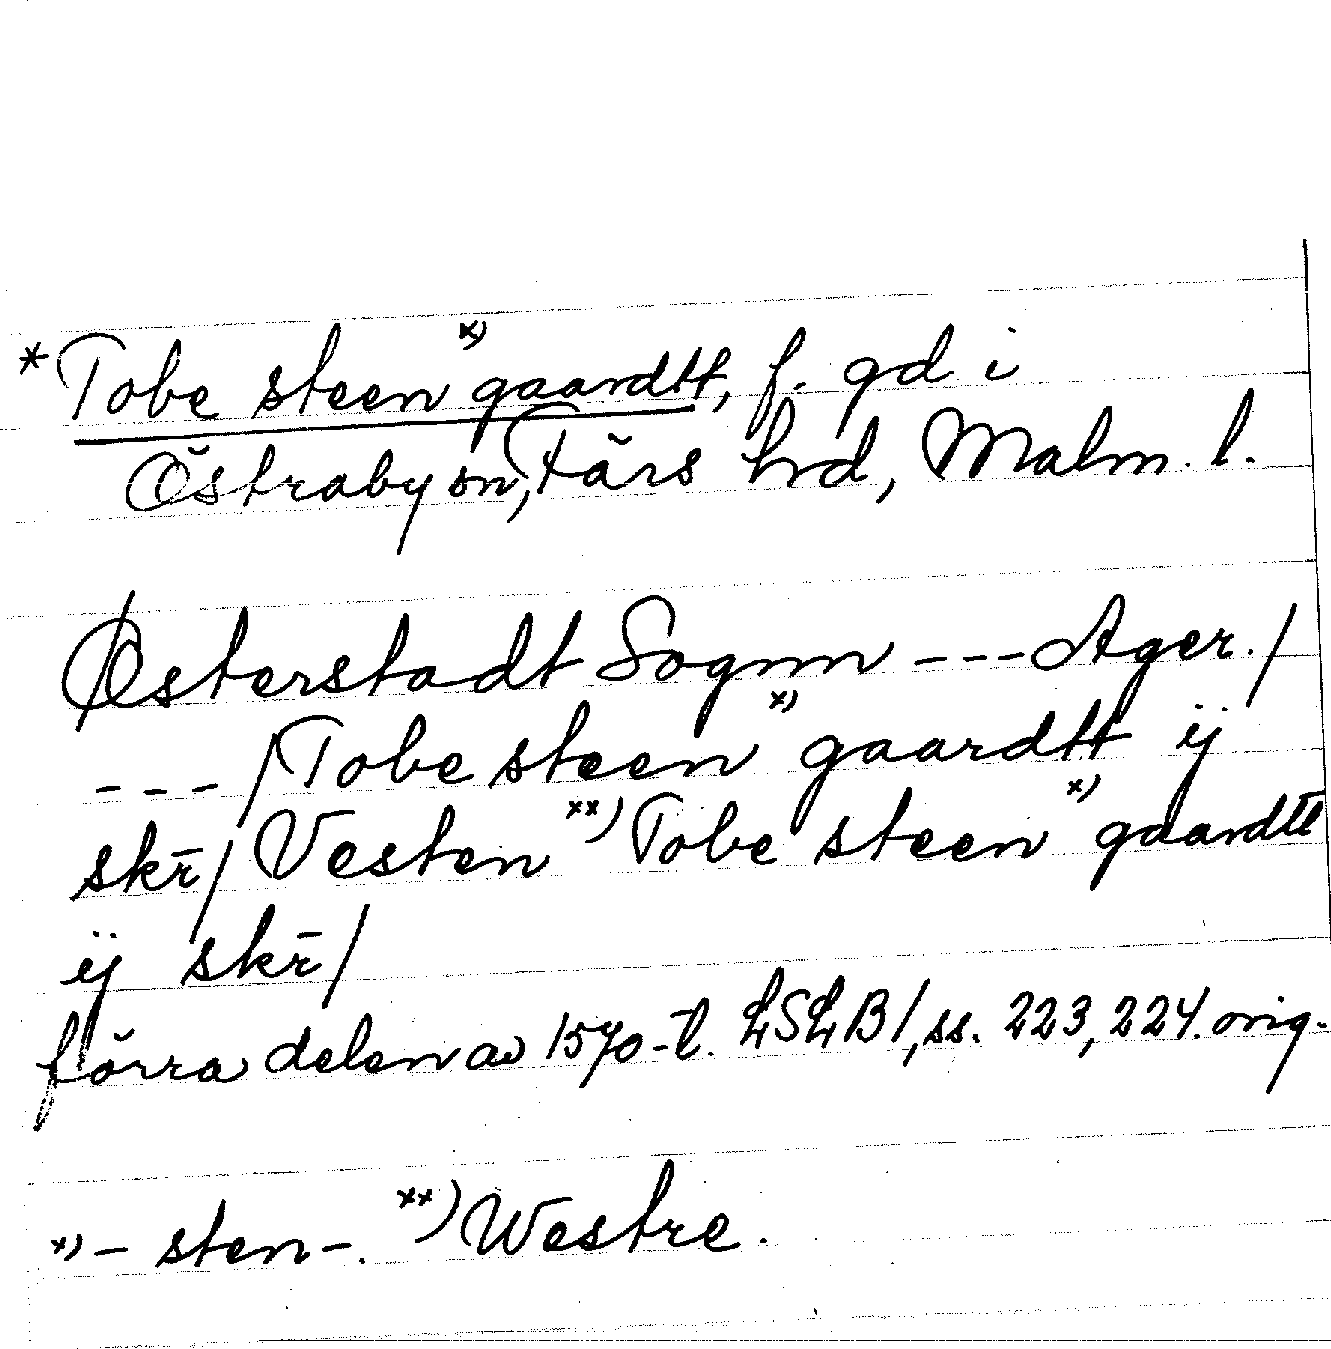 *Tobe steen ˣ⁾ gaardtt, f. gd i
Östraby sn, Färs hrd, Malm. l.
Østerstadt Sognn --- Ager./
--- /Tobe steen ˣ⁾ gaardtt ij
skr̄/ Vesten ˣˣ⁾ Tobe steen ˣ⁾ gaardtt
ij skr̄/
förra delen av 1570-t. LSLB1, ss. 223, 224. orig.
ˣ⁾ - sten -. ˣˣ⁾ Westre.